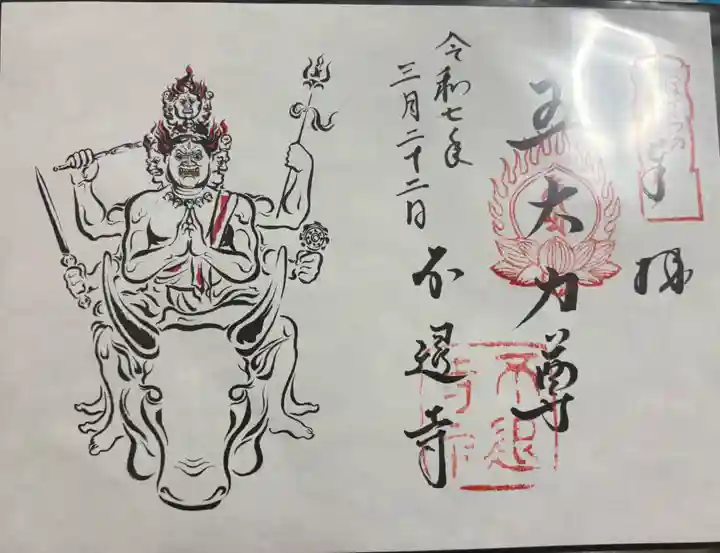 奉拝
五大力尊
不退寺
令和七年
三月二十二日
不退
寺印